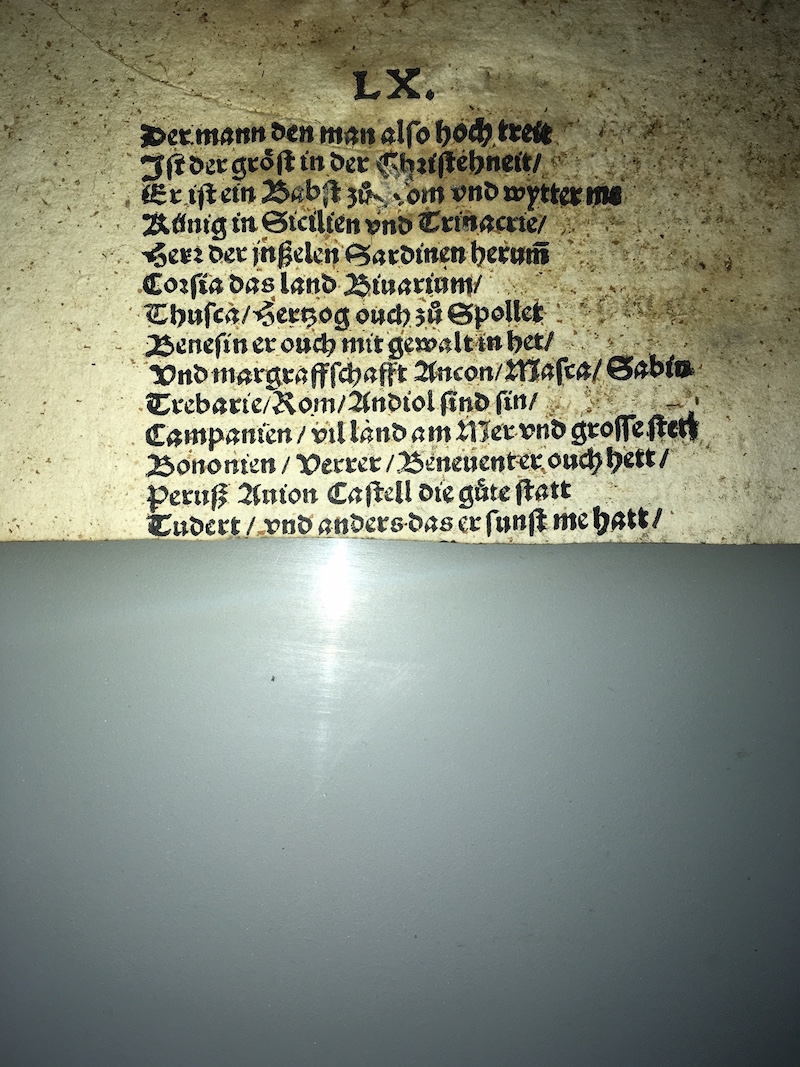 LX.
Der mann den man also hoch treit
Ist der gröst in der Christehneit/
Er ist ein Babst zů Rom vnd wytter me
Künig in Sicilien vnd Trinacrie/
Herr der jnßelen Sardinen herum̄
Corsia das land Biuarium/
Thusca/Hertzog ouch zů Spollet
Benesin er ouch mit gewalt in het/
Vnd margraffschafft Ancon/Masca/Sabin
Trebarie/Rom/Andiol sind sin/
Campanien/vil land am Mer vnd grosse stett
Bononien/Verrer/Beneuent er ouch hett/
Peruß Auion Castell die gůte statt
Tudert/vnd anders das er sunst me hatt/